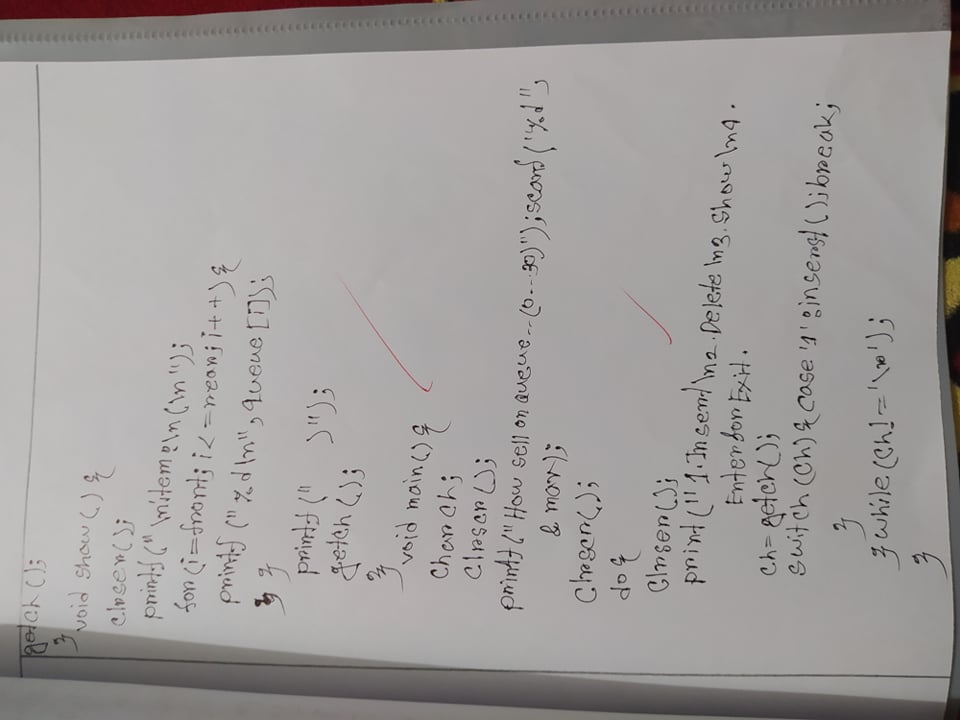 getch ();
}
void show() {
clrscr();
printf("\nitem:\n(\n");
for(i=front; i<=rear; i++) {
printf("%d\n", queue[i]);
} }
printf(" )");
getch ();
}
void main() {
char ch;
clrscr();
printf("How sell on queue..(0...30)"); scanf("%d",
& max);
clrscr();
do {
clrscr();
print("1.Insert\n2.Delete\n3.show\n4.
Enter for Exit.
ch=getch();
switch (ch) { case '1':insert();break;
}
} while(ch!='\r');
}